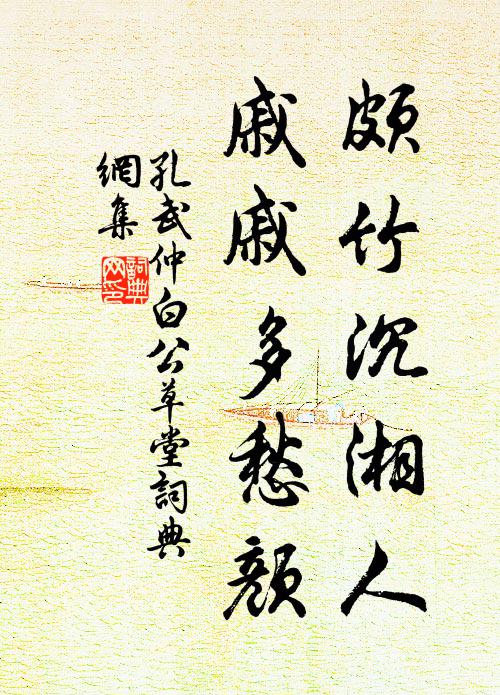 頗竹沉湘人
戚戚多愁顏
孔武仲白公草堂詞典
網集
詞典
网印